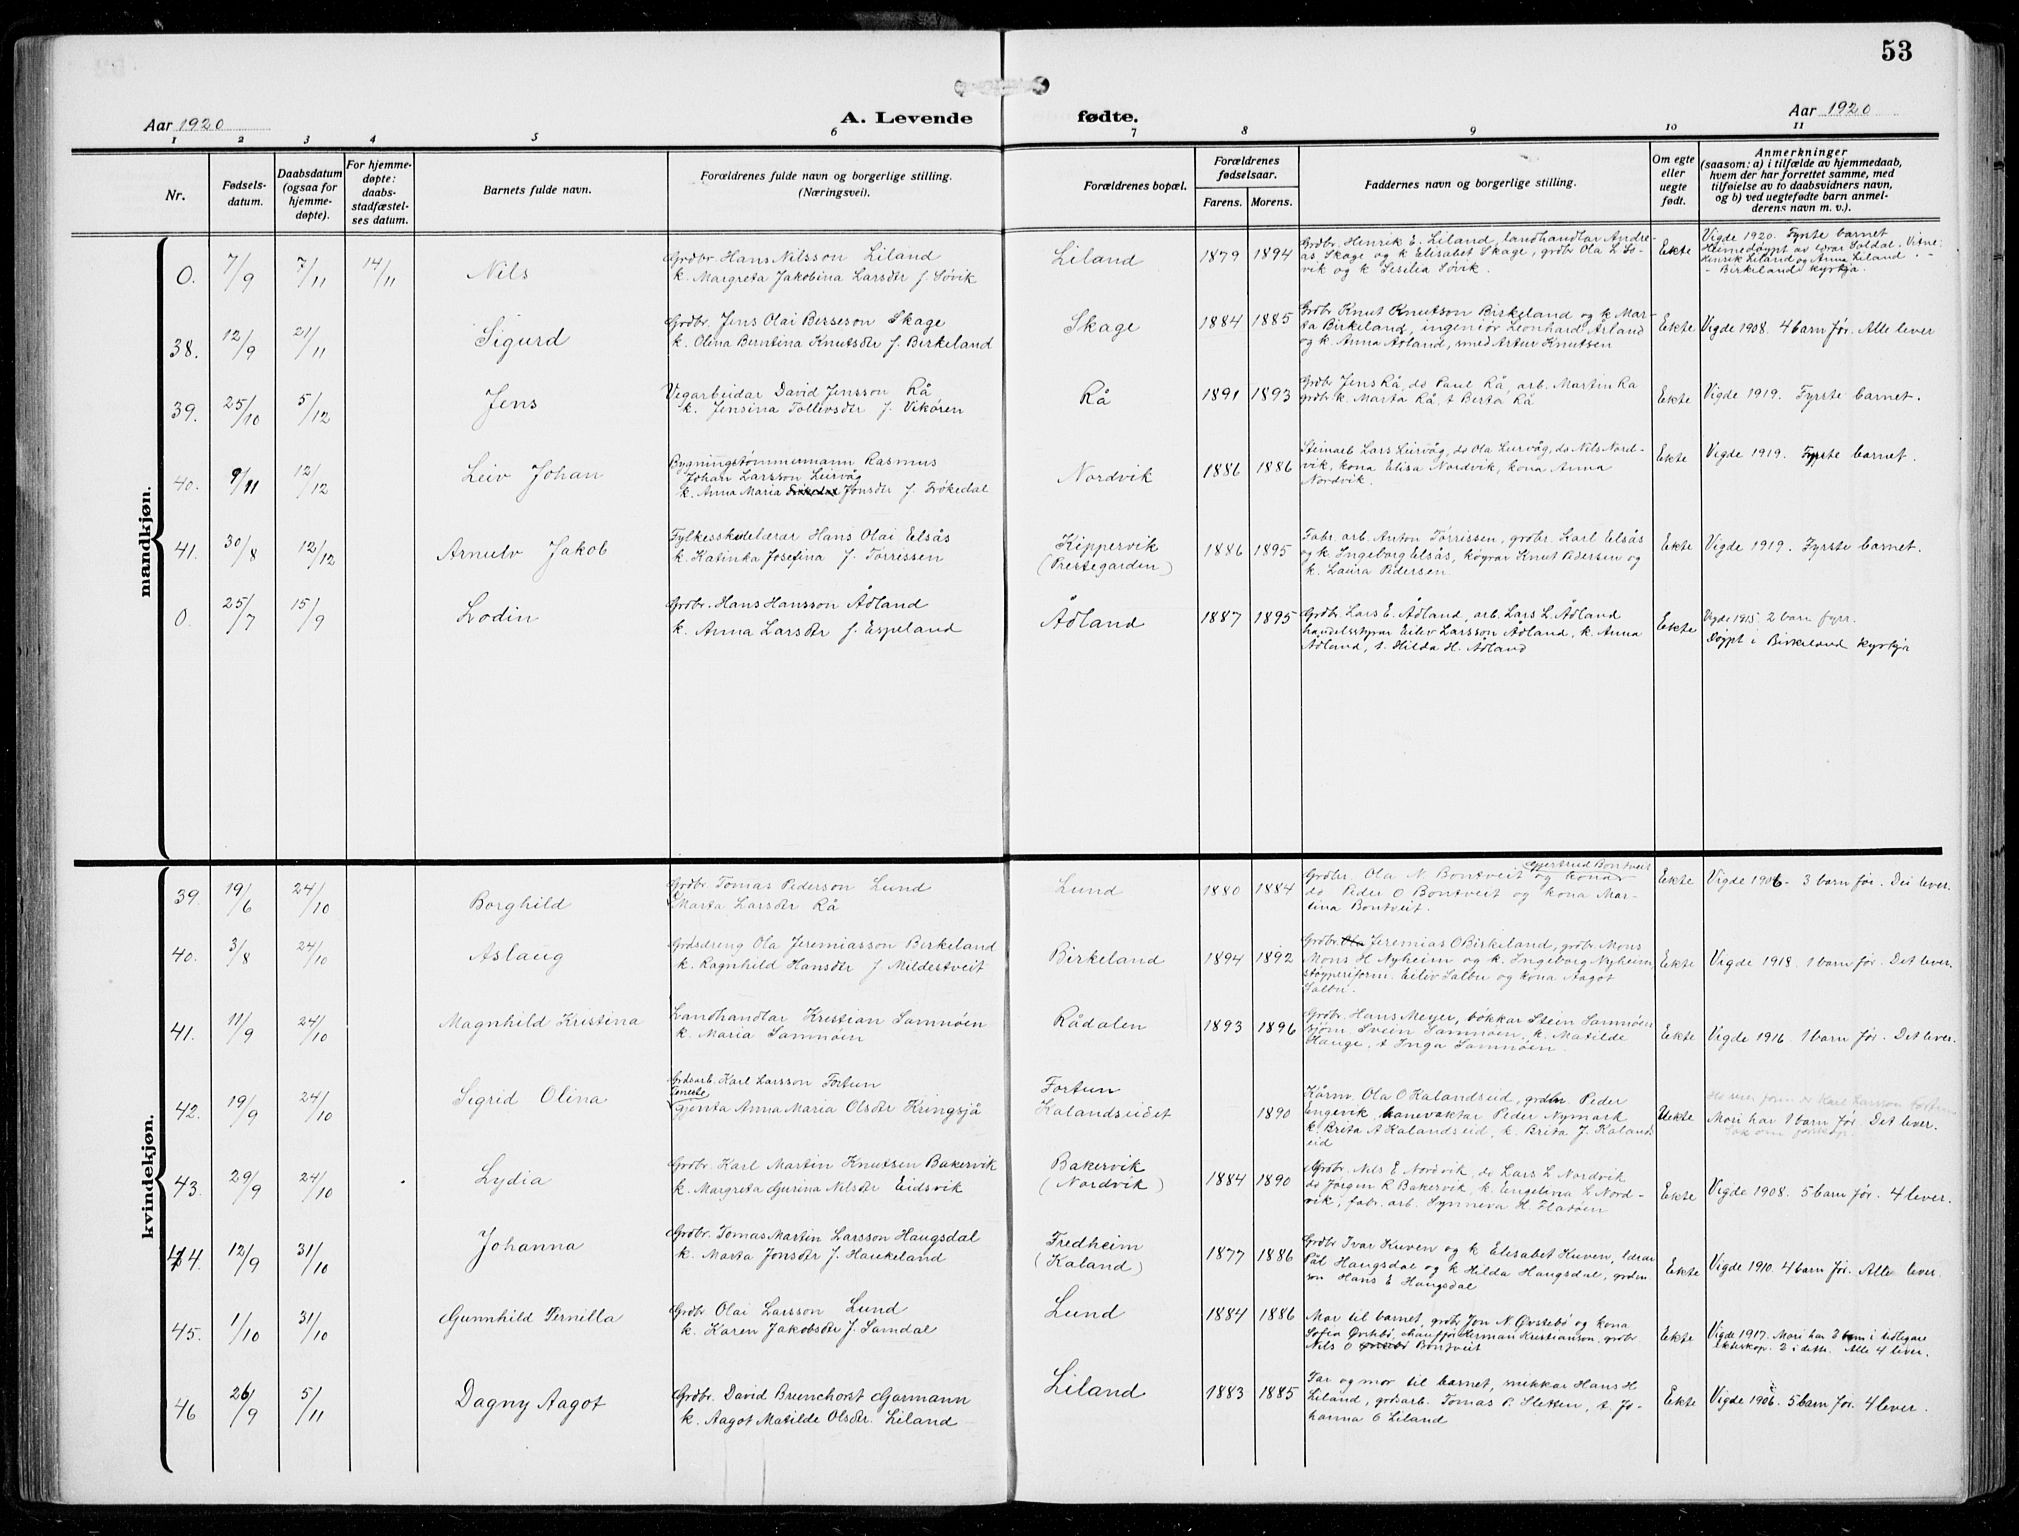 53
Aar 1920
A. Levende fødte.
Aar 1920
1 2 3 4 5 6 7 8 9 10 11
Nr.
Fødsels-
datum.
Daabsdatum
(ogsaa for
hjemme-
døpte).
For hjemme-
døpte:
daabs-
stadfæstel-
ses datum.
Barnets fulde navn.
Forældrenes fulde navn og borgerlige stilling.
(Næringsvei).
Forældrenes bopæl.
Forældrenes
fødselsaar.
Farens. Morens.
Faddernes navn og borgerlige stilling.
Om egte
eller
uegte
født.
Anmerkninger
(saasom: a) i tilfælde av hjemmedaab,
hvem der har forrettet samme, med
tilføielse av to daabsvidners navn,
og b) ved uegtefødte barn anmel-
derens navn m. v.).
mandkjøn.
0. 7/9 7/11 14/11 Nils
Grdbr. Hans Nilsson Liland
k. Margreta Jakobina Larsdtr f. Søvik
Liland 1879 1894
Grdbr. Henrik E. Liland, landhandlar Andre-
as Skage og k Elisabet Skage, grdbr Ola L Sø-
vik og k Sesilia Søvik.
Ekte
Vigde 1920. Fyrste barnet
Heimedøypt av lærar Soldal. Vitne:
Henrik Liland og Anna Liland.
Birkeland kyrkja.
38. 12/9 21/11 Sigurd
Grdbr. Jens Olai Berseson Skage
k. Olina Berntina Knutsdtr f. Birkeland
Skage 1884 1885
Grdbr Knut Knutson Birkeland og k Mar-
ta Birkeland, ingeniør Leonhard Ådland
og k. Anna Ådland, smed Artur Knutsen
Ekte Vigde 1908. 4 barn før. Alle lever
39. 25/10 5/12 Jens
Vegarbeidar David Jensson Rå
k. Jensina Tollevsdtr f. Vikøren
Rå 1891 1893
Grdbr Jens Rå, do Paul Rå, arb. Martin Rå
grdbr k. Marta Rå, t Berta Rå
Ekte Vigde 1919. Fyrste barnet.
40. 9/11 12/12 Leiv Johan
Bygningstømmermann Rasmus
Johan Larsson Leirvåg
k. Anna Maria Jonsdtr f. Frøkedal
Nordvik 1886 1886
Steinarb Lars Leirvåg, do Ola Leirvåg, do Nils Nord-
vik, kona Elisa Nordvik, kona Anna
Nordvik.
Ekte Vigde 1919. Fyrste barnet.
41. 30/8 12/12 Arnulv Jakob
Fylkesskulelærar Hans Olai Elsås
k. Katinka Josefina f. Tørrissen
Kippervik
(Prestegarden)
1886 1895
Fabr. arb. Anton Tørrissen, grdbr. Karl Elsås
og k. Ingeborg Elsås, Knut Pedersen og
k. Laura Pedersen.
Ekte Vigde 1919. Fyrste barnet.
0. 25/7 15/9 Lodin
Grdbr. Hans Hansson Ådland
k. Anna Larsdtr f. Espeland
Ådland 1887 1895
Grdbr. Lars E. Ådland, arb. Lars L. Ådland
handelsstyrar Eiliv Larsson Ådland, k. Anna
Ådland, t. Hilda H. Ådland
Ekte
Vigde 1915. 2 barn fyrr.
Døypt i Birkeland kyrkja
kvindekjøn.
39. 19/6 24/10 Borghild
Grdbr. Tomas Pederson Lund
Marta Larsdtr Rå
Lund 1880 1884
Gjertrud Bontveit
Grdbr. Ola N Bontveit og kona
do Peder O Bontveit og kona Mar-
tina Bontveit.
Ekte Vigde 1906 - 3 barn før. Dei lever.
40. 3/8 24/10 Aslaug
Grdsdreng Ola Jeremiasson Birkeland
k. Ragnhild Hansdtr f Mildestveit
Birkeland 1894 1892
Grdbr. Ola Jeremias O Birkeland, grdbr. Mons
Mons H Nyheim og k. Ingeborg Nyheim
støyperiform. Eiliv Salbu og kona Aagot
Salbu.
Ekte Vigde 1918. 1 barn før. Det lever.
41. 11/9 24/10 Magnhild Kristina
Landhandlar Kristian Samnøen
k. Maria Samnøen
Rådalen 1893 1896
Grdbr. Hans Meyer, bøkkar Stein Samnøen
sjøm. Svein Samnøen, k. Matilde
Hauge, t Inga Samnøen.
Ekte Vigde 1916. 1 barn før. Det lever.
42. 19/9 24/10 Sigrid Olina
Grdsarb. Karl Larsson Fortun
Teneste
gjenta Anna Maria Olsdtr Kringsjå
Fortun
Kalandseidet
1890
Kårm. Ola O Kalandseid, grdbr. Peder
Engevik banevaktar Peder Nymark
k. Brita A Kalandseid, k. Brita J. Kalands
eid
Uekte
Mori har 1 barn før. Det lever.
43. 29/9 24/10 Lydia
Grdbr. Karl Martin Knutsen Bakervik
k. Margreta Gurina Nilsdtr Eidsvik
Bakervik
(Nordvik)
1884 1890
Grdbr. Nils E Nordvik, do Lars L Nordvik
do Jørgen R Bakervik, k. Engelina L Nord-
vik, fabr. arb. Synneva H. Fladøen
Ekte Vigde 1908. 5 barn før. 4 lever.
44. 12/9 31/10 Johanna
Grdbr. Tomas Martin Larsson Haugsdal
k. Marta Jonsdtr f. Haukeland
Fredheim
(Kaland)
1877 1886
Grdbr Ivar Kuven og k Elisabet Kuven, lærar
Pål Haugsdal og k Hilda Haugsdal, grdm.
son Hans E Haugsdal
Ekte Vigde 1910. 4 barn før. Alle lever.
45. 1/10 31/10 Gunnhild Pernilla
Grdbr Olai Larsson Lund
k. Karen Jakobsdtr f. Samdal
Lund 1884 1886
Mor til barnet, grdbr Jon N. Øvstebø og kona
Sofia Øvstebø, chauffør Herman Kristianson, grdbr
Nils O Bontveit
Ekte
Vigde 1917. Mori har 3 barn i tidlegare
ekteskap. 2 i dette. Alle 4 lever.
46 26/9 5/11 Dagny Aagot
Grdbr. David Brunchorst Garmann
k. Aagot Matilde Olsdtr. Liland
Liland 1883 1885
Far og mor til barnet, snikkar Hans H
Liland, grdsarb. Tomas P. Sletten, t Jo-
hanna O Liland
Ekte Vigde 1906. 5 barn før. 4 lever.